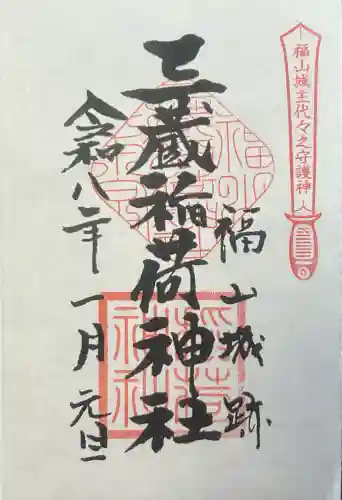 福山城主代々之守護神
福山城跡
三蔵稲荷神社
稲荷
神社
令和八年
一月元旦